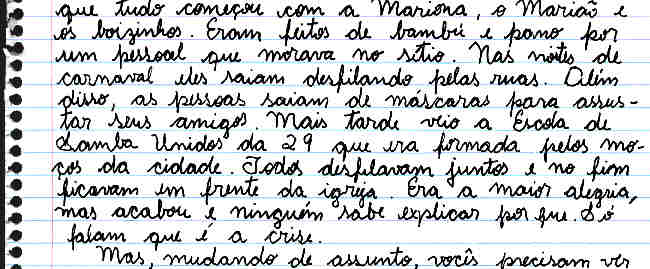 que tudo começou com a Mariona, o Marião e
os boizinhos. Eram feitos de bambú e pano por
um pessoal que morava no sítio. Nas noites de
carnaval eles saiam desfilando pelas ruas. Além
disso, as pessoas saiam de máscaras para assus-
tar seus amigos. Mais tarde veio a Escola de
Samba Unidos da 29 que era formada pelos mo-
ços da cidade. Todos desfilavam juntos e no fim
ficavam em frente da igreja. Era a maior alegria,
mas acabou e ninguém sabe explicar por que. Só
falam que é a crise.
Mas, mudando de assunto, vocês precisam ver